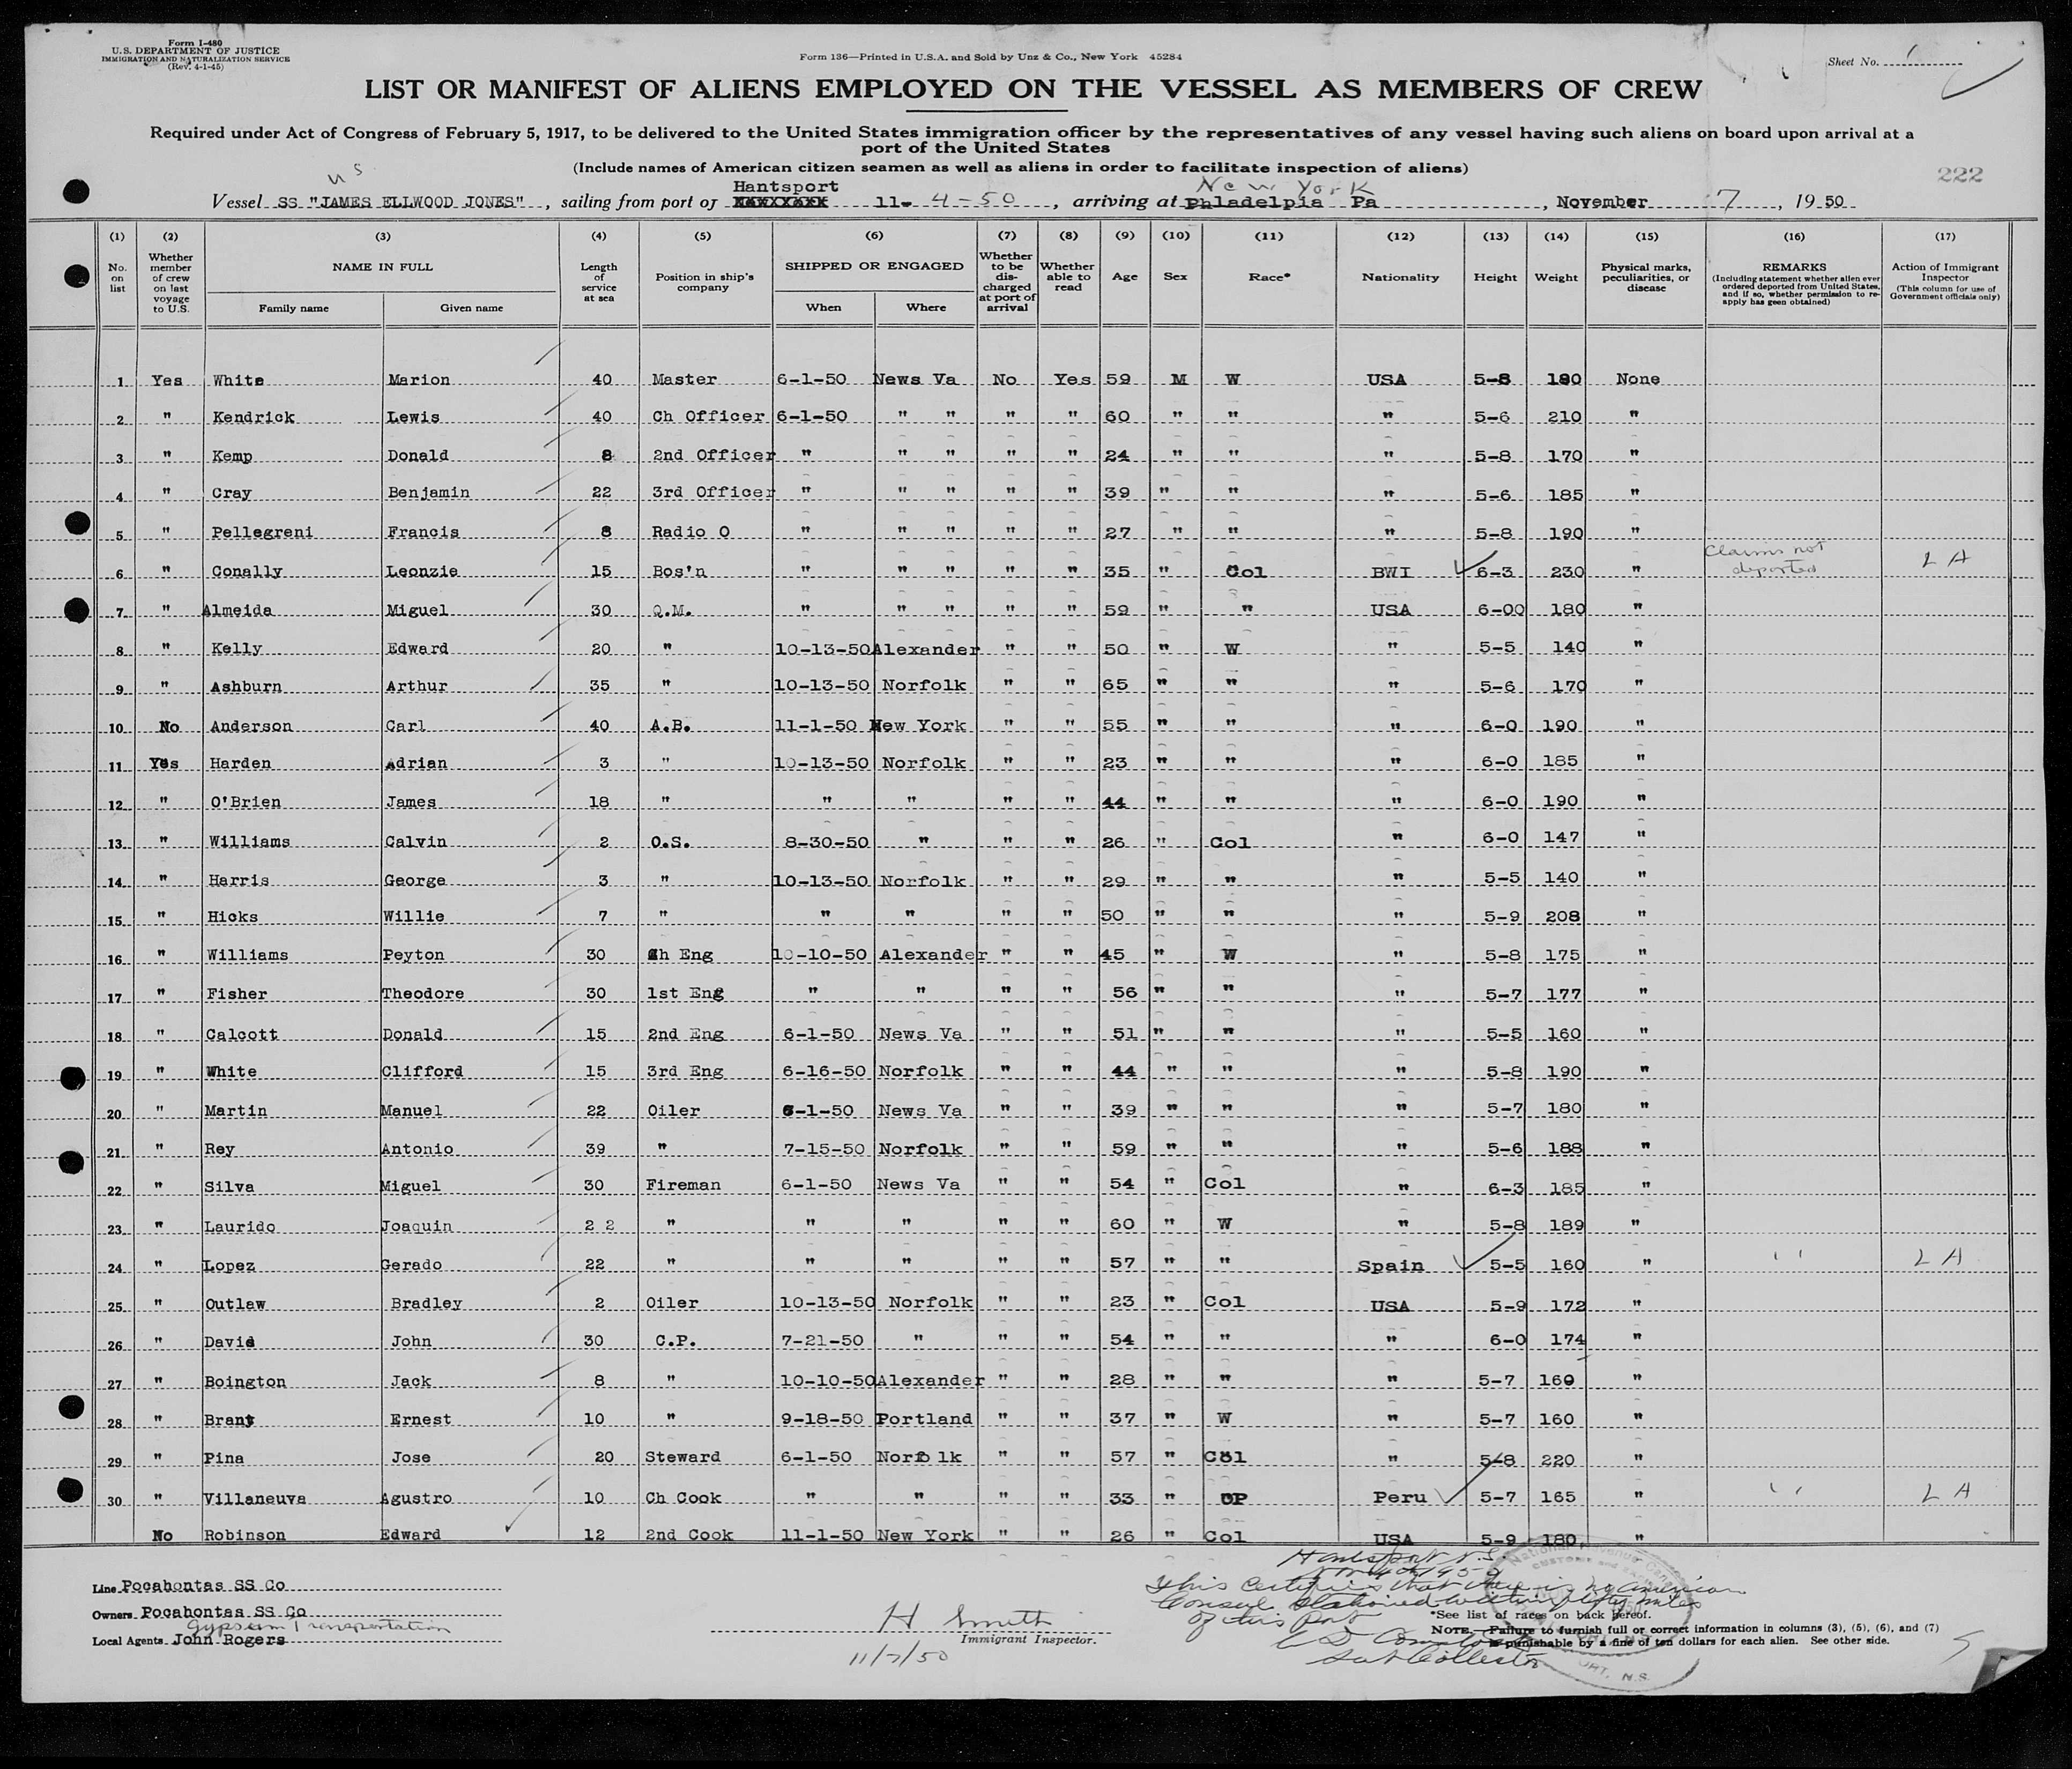 Form I-480
U.S. DEPARTMENT OF JUSTICE
IMMIGRATION AND NATURALIZATION SERVICE
(Rev. 4-1-45)
Form 136—Printed in U.S.A. and Sold by Unz & Co., New York 45284
Sheet No. 1
LIST OR MANIFEST OF ALIENS EMPLOYED ON THE VESSEL AS MEMBERS OF CREW
Required under Act of Congress of February 5, 1917, to be delivered to the United States immigration officer by the representatives of any vessel having such aliens on board upon arrival at a
port of the United States
(Include names of American citizen seamen as well as aliens in order to facilitate inspection of aliens)
222
US
Hantsport New York
Vessel SS "JAMES ELLWOOD JONES", sailing from port of XXXXXXXX 11-4-50, arriving at Phladelpia Pa, November 7, 1950
(1) (2) (3) (4) (5) (6) (7) (8) (9) (10) (11) (12) (13) (14) (15) (16) (17)
No. on list
Whether member of crew on last voyage to U.S.
NAME IN FULL
Family name Given name
Length of service at sea
Position in ship's company
SHIPPED OR ENGAGED
When Where
Whether to be discharged at port of arrival
Whether able to read
Age
Sex
Race*
Nationality
Height
Weight
Physical marks, peculiarities, or disease
REMARKS
(Including statement whether alien ever ordered deported from United States, and if so, whether permission to re-apply has geen obtained)
Action of Immigrant Inspector
(This column for use of Government officials only)
1 Yes White Marion 40 Master 6-1-50 News Va No Yes 59 M W USA 5-8 180 None
2 " Kendrick Lewis 40 Ch Officer 6-1-50 " " " " 60 " " " 5-6 210 "
3 " Kemp Donald 8 2nd Officer " " " " " 24 " " " 5-8 170 "
4 " Cray Benjamin 22 3rd Officer " " " " " 39 " " " 5-6 185 "
5 " Pellegreni Francis 8 Radio O " " " " " 27 " " " 5-8 190 "
6 " Conally Leonzie 15 Bos'n " " " " " 35 " Col BWI 6-3 230 " Claims not deported L A
7 " Almeida Miguel 30 Q.M. " " " " " 59 " " USA 6-00 180 "
8 " Kelly Edward 20 " 10-13-50 Alexander " " 50 " W " 5-5 140 "
9 " Ashburn Arthur 35 " 10-13-50 Norfolk " " 65 " " " 5-6 170 "
10 No Anderson Carl 40 A.B. 11-1-50 New York " " 55 " " " 6-0 190 "
11 Yes Harden Adrian 3 " 10-13-50 Norfolk " " 23 " " " 6-0 185 "
12 " O'Brien James 18 " " " " " 44 " " " 6-0 190 "
13 " Williams Calvin 2 O.S. 8-30-50 " " " 26 " Col " 6-0 147 "
14 " Harris George 3 " 10-13-50 Norfolk " " 29 " " " 5-5 140 "
15 " Hicks Willie 7 " " " " " 50 " " " 5-9 208 "
16 " Williams Peyton 30 Ch Eng 10-10-50 Alexander " " 45 " W " 5-8 175 "
17 " Fisher Theodore 30 1st Eng " " " " 56 " " " 5-7 177 "
18 " Calcott Donald 15 2nd Eng 6-1-50 News Va " " 51 " " " 5-5 160 "
19 " White Clifford 15 3rd Eng 6-16-50 Norfolk " " 44 " " " 5-8 190 "
20 " Martin Manuel 22 Oiler 6-1-50 News Va " " 39 " " " 5-7 180 "
21 " Rey Antonio 39 " 7-15-50 Norfolk " " 59 " " " 5-6 188 "
22 " Silva Miguel 30 Fireman 6-1-50 News Va " " 54 " Col " 6-3 185 "
23 " Laurido Joaquin 2 2 " " " " " 60 " W " 5-8 189 "
24 " Lopez Gerado 22 " " " " " 57 " " Spain 5-5 160 " " L A
25 " Outlaw Bradley 2 Oiler 10-13-50 Norfolk " " 23 " Col USA 5-9 172 "
26 " David John 30 C.P. 7-21-50 " " " 54 " " " 6-0 174 "
27 " Boington Jack 8 " 10-10-50 Alexander " " 28 " " " 5-7 160 "
28 " Brant Ernest 10 " 9-18-50 Portland " " 37 " W " 5-7 160 "
29 " Pina Jose 20 Steward 6-1-50 Norfolk " " 57 " Col " 5-8 220 "
30 " Villaneuva Agustro 10 Ch Cook " " " " 33 " OP Peru 5-7 165 " " L A
No Robinson Edward 12 2nd Cook 11-1-50 New York " " 26 " Col USA 5-9 180 "
Line Pocahontas SS Co
Owners Pocahontas SS Co
Gypsum Transportation
Local Agents John Rogers
H Smith
Immigrant Inspector.
11/7/50
Hantsport N.S.
Nov 4th 1950
This certifies that there is no American
Consul stationed within fifty miles
of this Port
Sub Collector
*See list of races on back hereof.
NOTE.—Failure to furnish full or correct information in columns (3), (5), (6), and (7)
is punishable by a fine of ten dollars for each alien. See other side.